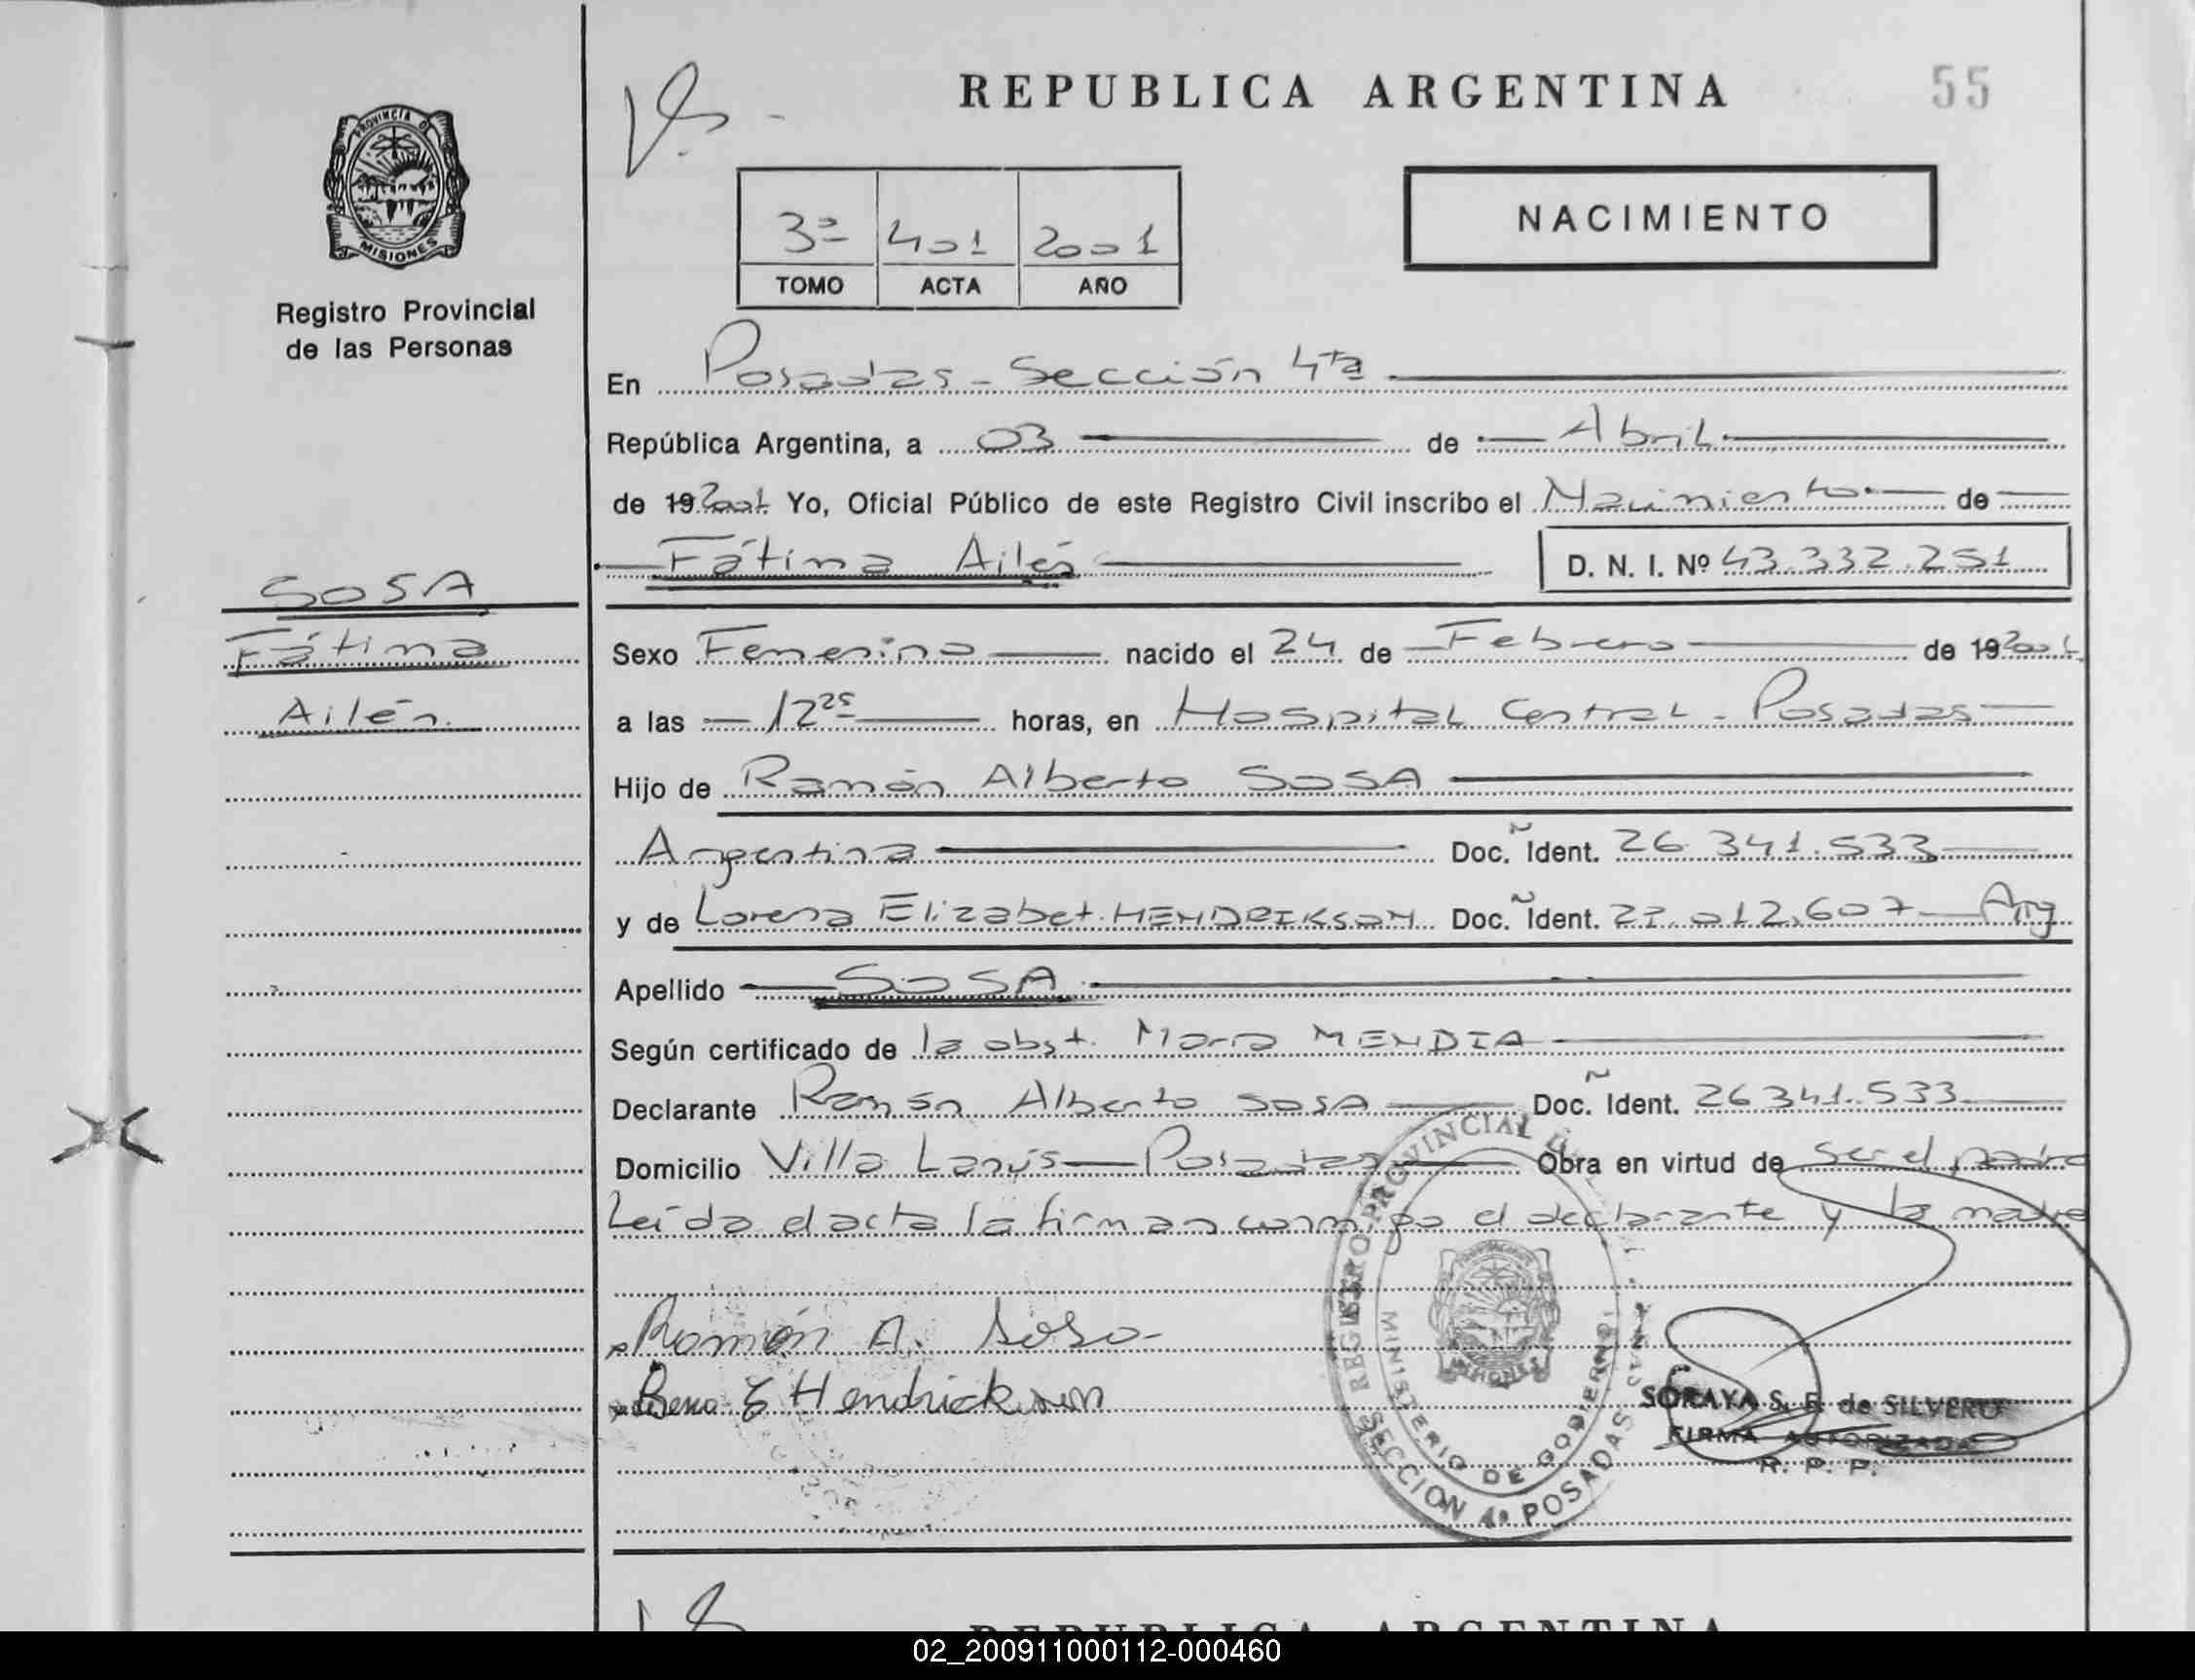 REPUBLICA ARGENTINA
55
PROVINCIA DE
MISIONES
Registro Provincial
de las Personas
3ª 401 2001
TOMO ACTA AÑO
NACIMIENTO
En Posadas - Sección 4ta
República Argentina, a 03 de Abril
de 19 2001 Yo, Oficial Público de este Registro Civil inscribo el Nacimiento de
Fátima Ailén D. N. I. Nº 43.332.251
SOSA
Fátima
Ailén
Sexo Femenino nacido el 24 de Febrero de 19 2001
a las 12 25 horas, en Hospital Central - Posadas
Hijo de Ramón Alberto SOSA
Argentina Doc. Ident. 26.341.533
y de Lorena Elizabet HENDRIKSON Doc. Ident. 27.012.607 Arg
Apellido SOSA
Según certificado de la obst. María MENDIA
Declarante Ramón Alberto SOSA Doc. Ident. 26.341.533
Domicilio Villa Lanús - Posadas Obra en virtud de ser el padre
Leída el acta la firman conmigo el declarante y la madre
Ramón A. Sosa
E Hendrickson
REGISTRO PROVINCIAL
MINISTERIO DE GOBIERNO
SECCION 4ª POSADAS
SORAYA S. F. de SILVERO
FIRMA AUTORIZADA
R. P. P.
REPUBLICA ARGENTINA
02_200911000112-000460